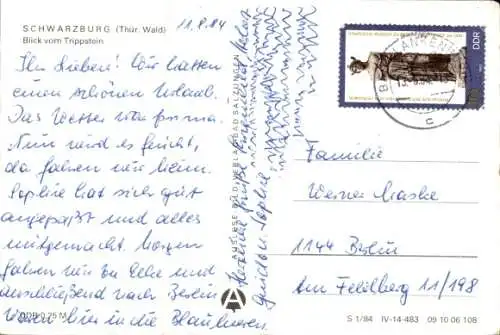 SCHWARZBURG (Thür. Wald)
Blick vom Trippstein
11.9.84
Ihr Lieben! Wir hatten
einen schönen Urlaub.
Das Wetter war prima.
Nun wird es feucht,
da fahren wir heim.
Sophie hat sich gut
angepaßt und alles
mitgemacht. Morgen
fahren wir zu Elke und
anschließend nach Berlin
Waren hier in die Blaubeeren.
Herzliche Grüße
Sophie
DDR 0,25 M
AUSLESE-BILD-VERLAG BAD SALZUNGEN
A
DDR
BLANKENBURG
c
Familie
Werner Maske
1144 Berlin
Am Feldberg 11/198
S 1/84 IV-14-483 09 10 06 108